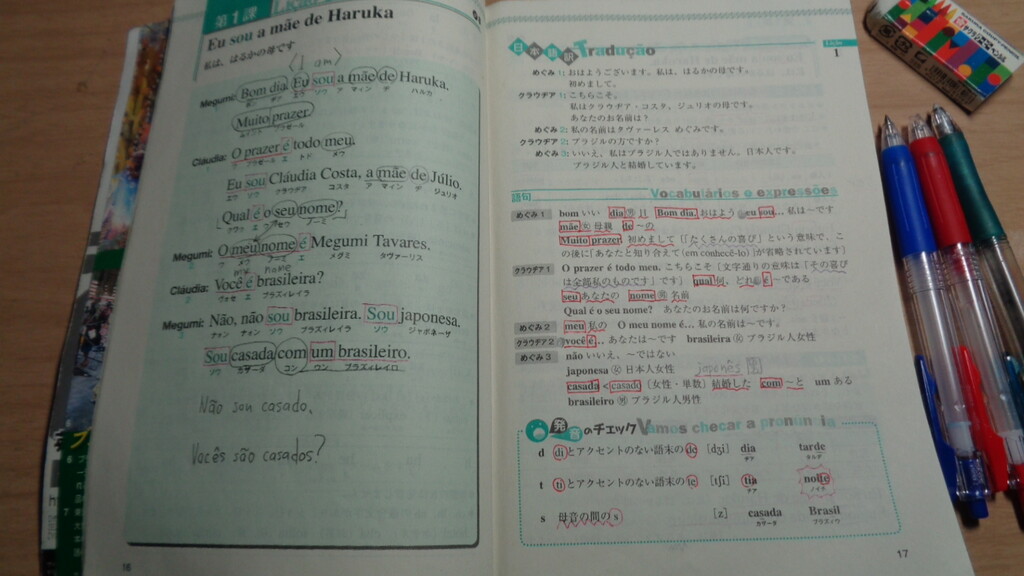 第1課
Eu sou a mãe de Haruka
私は、はるかの母です
< I am >
Megumi: Bom dia. Eu sou a mãe de Haruka.
Muito prazer.
Cláudia: O prazer é todo meu.
Eu sou Cláudia Costa, a mãe de Júlio.
クラウヂア コスタ ア マィン ヂ ジュリオ
Qual é o seu nome?
Megumi: O meu nome é Megumi Tavares.
メグミ タヴァーリス
Cláudia: Você é brasileira?
ヴォセ エ ブラズィレイラ
Megumi: Não, não sou brasileira. Sou japonesa.
ナォン ナォン ソウ ブラズィレイラ ソウ ジャポネーザ
Sou casada com um brasileiro.
ソウ カザーダ コン ウン ブラズィレイロ
Não sou casado.
Vocês são casados?
16
日本語訳 Tradução
Lição 1
めぐみ 1: おはようございます。私は、はるかの母です。
初めまして。
クラウヂア 1: こちらこそ。
私はクラウヂア・コスタ、ジュリオの母です。
あなたのお名前は？
めぐみ 2: 私の名前はタヴァーレス めぐみです。
クラウヂア 2: ブラジルの方ですか？
めぐみ 3: いいえ、私はブラジル人ではありません。日本人です。
ブラジル人と結婚しています。
語句 Vocabulários e expressões
めぐみ 1 bom いい dia 男 日 Bom dia. おはよう eu sou... 私は〜です
mãe 女 母親 de 〜の
Muito prazer. 初めまして「『たくさんの喜び』という意味で、こ
の後に『あなたと知り合えて(em conhecê-lo)』が省略されています」
クラウヂア 1 O prazer é todo meu. こちらこそ「文字通りの意味は『その喜び
は全部私のものです』です」 qual 何、どれ é 〜である
seu あなたの nome 男 名前
Qual é o seu nome? あなたのお名前は何ですか？
めぐみ 2 meu 私の O meu nome é... 私の名前は〜です。
クラウヂア 2 você é... あなたは〜です brasileira 女 ブラジル人女性
めぐみ 3 não いいえ、〜ではない
japonesa 女 日本人女性 japonês 男
casada < casado（女性・単数）結婚した com 〜と um ある
brasileiro 男 ブラジル人男性
発音のチェック Vamos checar a pronúncia
d diとアクセントのない語末のde [dʒi] dia tarde
ヂア タルヂ
t tiとアクセントのない語末のte [tʃi] tia noite
チア ノイチ
s 母音の間のs [z] casada Brasil
カザーダ ブラズィウ
17